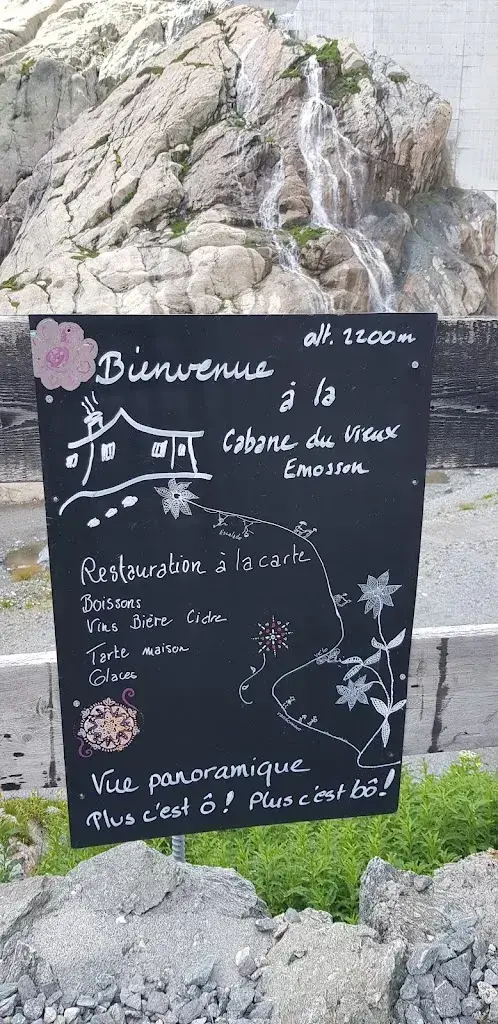 alt. 2200m
Bienvenue
à la
Cabane du Vieux
Emosson
Escalade
Restauration à la carte
Boissons
Vins Bière Cidre
Tarte maison
Glaces
Vue panoramique
Plus c'est Ô! Plus c'est bô!